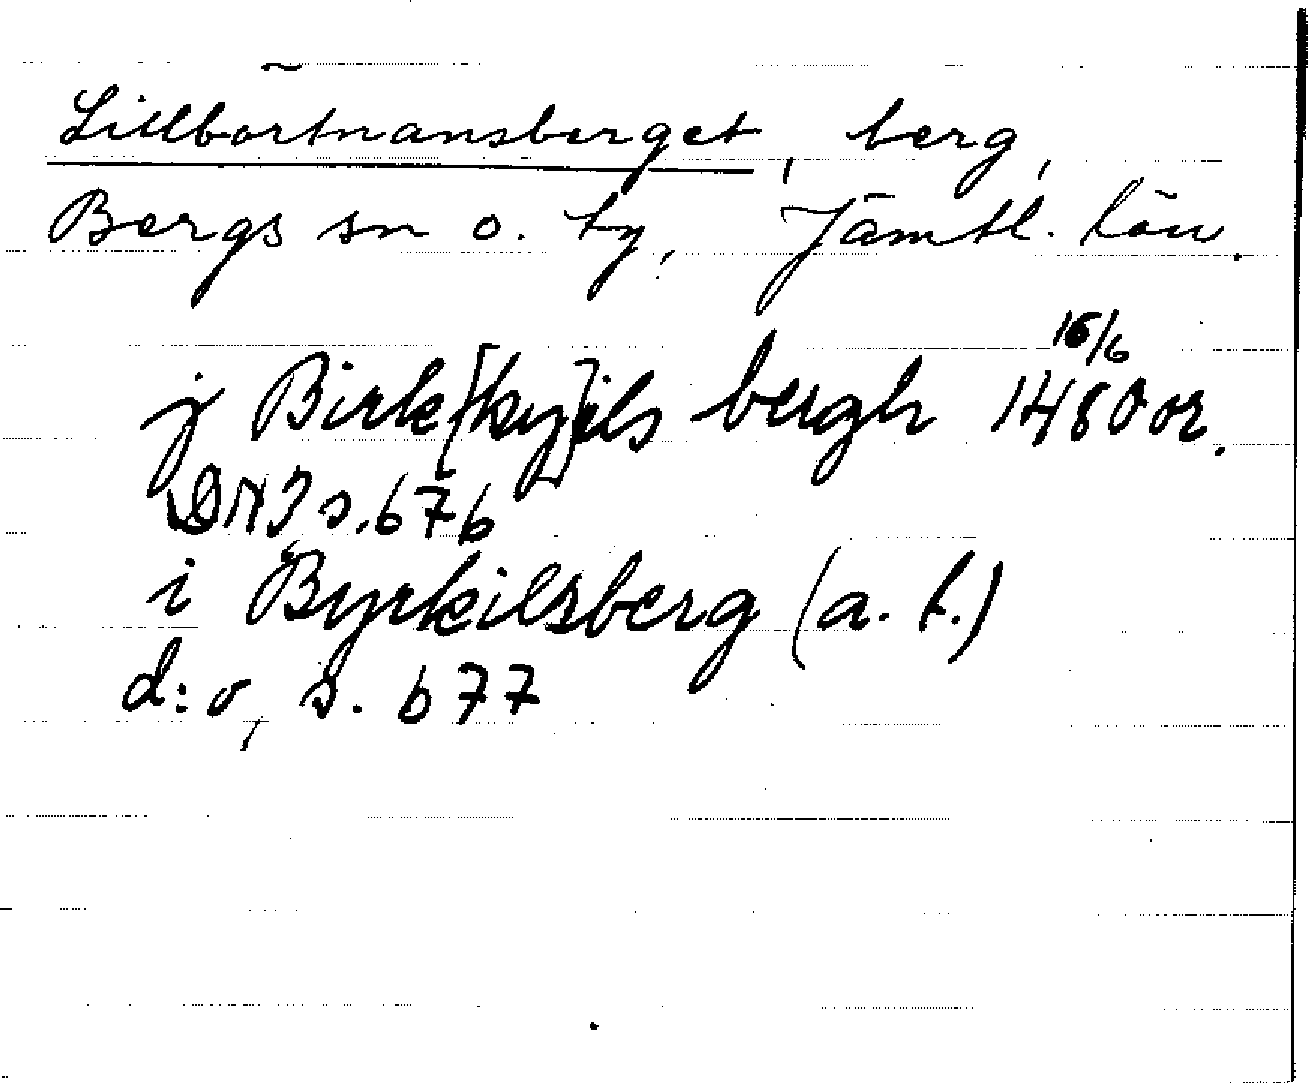 Lillbörtnansberget, berg,
Bergs sn o. ty, Jämtl. län.
j Birk[ky]ils bergh 16/6 1480 or.
DMJ s. 676
i Byrkilsberg (a. h.)
d:o, s. 677